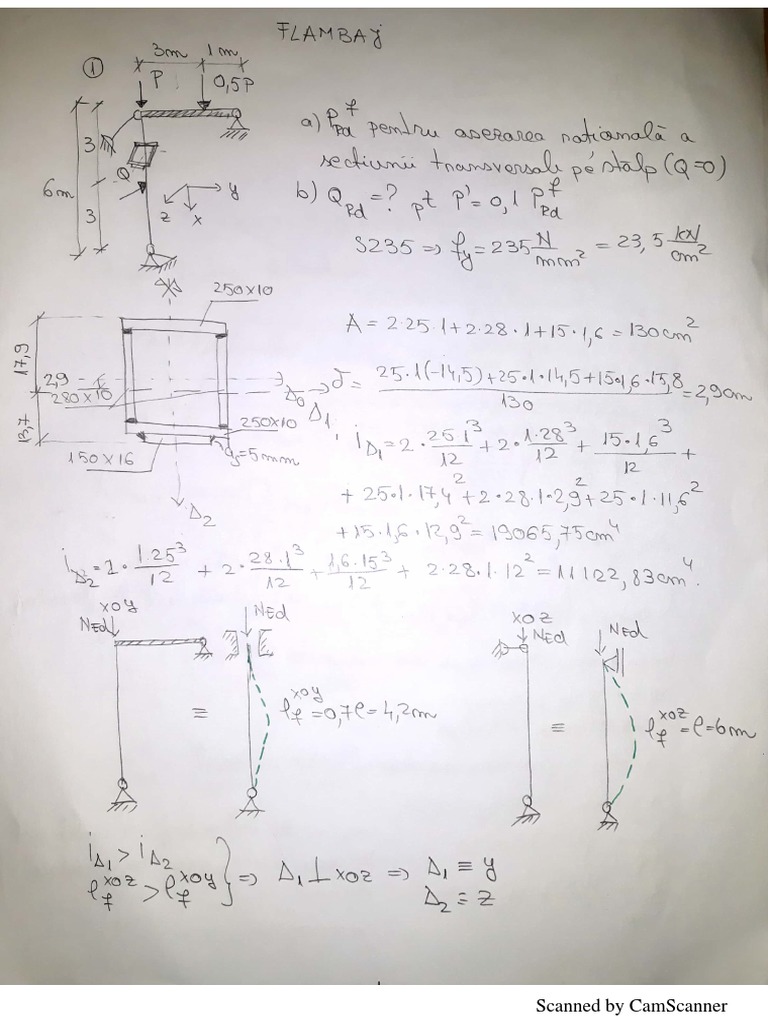 FLAMBAJ
①
3m 1m
P 0,5P
3
6m
3
Q
y
z x
a) P_Rd^f pentru asezarea rationala a
sectiunii transversale pe stalp (Q=0)
b) Q_Rd = ? pt P' = 0,1 P_Rd^f
S235 ⇒ f_y = 235 N/mm² = 23,5 kN/cm²
250x10
17,9
2,9
280x10
13,7
250x10
150x16
g=5mm
Δ0
Δ1
Δ2
A = 2·25·1+2·28·1+15·1,6 = 130cm²
d = (25·1(-14,5)+25·1·14,5+15·1,6·15,8)/130 = 2,90cm
i_Δ1 = 2·25·1³/12 + 2·1·28³/12 + 15·1,6³/12 +
+ 25·1·17,4² + 2·28·1·2,9² + 25·1·11,6²
+15·1,6·12,9² = 19065,75cm⁴
i_Δ2 = 2·1·25³/12 + 2·28·1³/12 + 1,6·15³/12 + 2·28·1·12² = 11122,83cm⁴.
xoy
NEd
NEd
≡
l_f^xoy = 0,7l = 4,2m
xoz
NEd
NEd
≡
l_f^xoz = l = 6m
i_Δ1 > i_Δ2
l_f^xoz > l_f^xoy } ⇒ Δ1 ⊥ xoz ⇒ Δ1 ≡ y
Δ2 ≡ z
Scanned by CamScanner